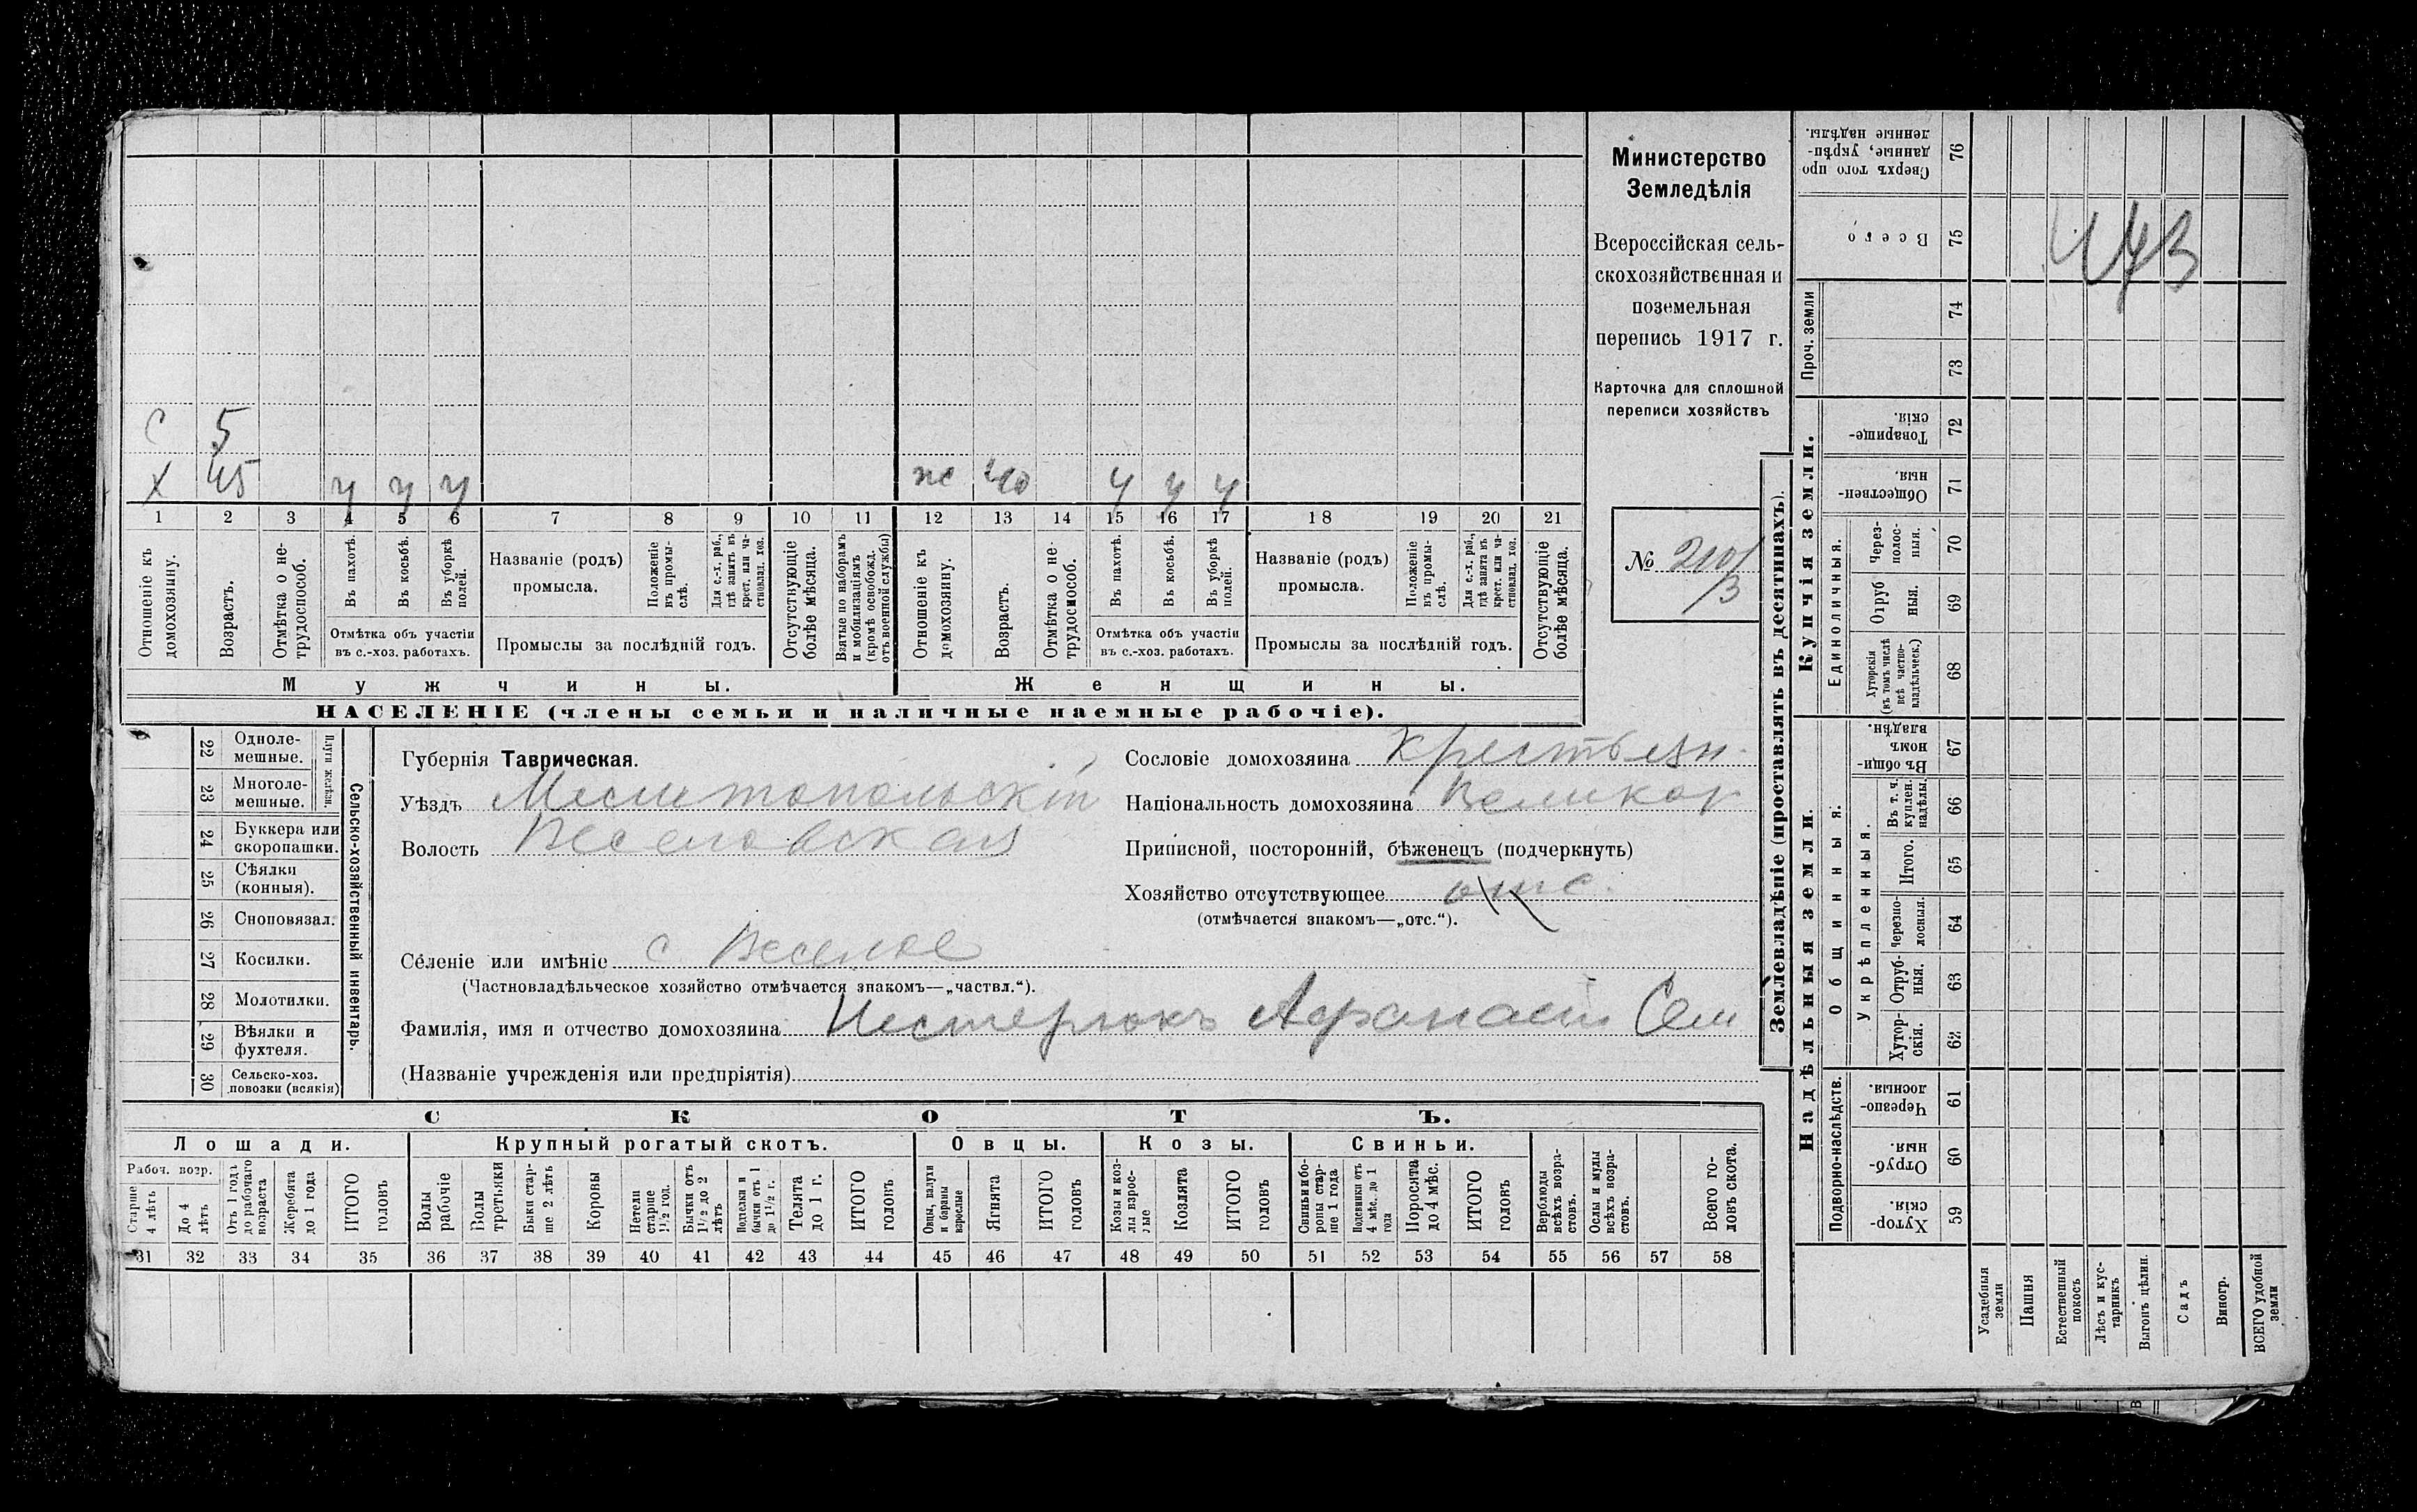 С 5
Х 45 у у у ж 40 у у у
1 2 3 4 5 6 7 8 9 10 11 12 13 14 15 16 17 18 19 20 21
Отношеніе къ домохозяину.
Возрастъ.
Отмѣтка о не-
трудоспособ.
Въ пахотѣ.
Въ косьбѣ.
Въ уборкѣ полей.
Отмѣтка объ участіи
въ с.-хоз. работахъ.
Названіе (родъ)
промысла.
Положеніе
въ промы-
слѣ.
Для с.-х. раб.,
гдѣ занятъ въ
крест. или ча-
стновлад. хоз.
Промыслы за послѣдній годъ.
Отсутствующіе
болѣе мѣсяца.
Взятые по наборамъ
и мобилизаціямъ
(кромѣ освобожд.
отъ военной службы)
Отношеніе къ
домохозяину.
Возрастъ.
Отмѣтка о не-
трудоспособ.
Въ пахотѣ.
Въ косьбѣ.
Въ уборкѣ
полей.
Отмѣтка объ участіи
въ с.-хоз. работахъ.
Названіе (родъ)
промысла.
Положеніе
въ промы-
слѣ.
Для с.-х. раб.,
гдѣ занята въ
крест. или ча-
стновлад. хоз.
Промыслы за послѣдній годъ.
Отсутствующіе
болѣе мѣсяца.
Мужчины. Женщины.
НАСЕЛЕНІЕ (члены семьи и наличные наемные рабочіе).
Министерство
Земледѣлія
Всероссійская сель-
скохозяйственная и
поземельная
перепись 1917 г.
Карточка для сплошной
переписи хозяйствъ
№
22 Одноле-
мешные.
23 Многоле-
мешные.
Плуги желѣзн.
24 Буккера или
скоропашки.
25 Сѣялки
(конныя).
26 Сноповязал.
27 Косилки.
28 Молотилки.
29 Вѣялки и
фухтеля.
30 Сельско-хоз.
повозки (всякія)
Сельско-хозяйственный инвентарь.
Губернія Таврическая.
Уѣздъ Мелитопольскій
Волость Веселовская
Сословіе домохозяина крестьян.
Національность домохозяина Великор
Приписной, посторонній, бѣженецъ (подчеркнуть)
Хозяйство отсутствующее отс.
(отмѣчается знакомъ—„отс.“).
Селеніе или имѣніе с Веселое
(Частновладѣльческое хозяйство отмѣчается знакомъ—„частвл.“).
Фамилія, имя и отчество домохозяина Нестерюкъ Афанасій Сем
(Названіе учрежденія или предпріятія)
СКОТЪ.
Лошади. Крупный рогатый скотъ. Овцы. Козы. Свиньи.
Рабоч. возр.
Старше
4 лѣтъ
До 4
лѣтъ
Отъ 1 года
до рабочаго
возраста
Жеребята
до 1 года
ИТОГО
головъ
Волы
рабочіе
Волы
третьяки
Быки стар-
ше 2 лѣтъ
Коровы
Нетели
старше
1½ год.
Бычки отъ
1½ до 2
лѣтъ
Подтелки и
бычки отъ 1
до 1½ г.
Телята
до 1 г.
ИТОГО
головъ
Овцы, валухи
и бараны
взрослые
Ягнята
ИТОГО
головъ
Козы и коз-
лы взрос-
лые
Козлята
ИТОГО
головъ
Свиньи и бо-
ровы стар-
ше 1 года
Подсвинки отъ
4 мѣс. до 1
года
Поросята
до 4 мѣс.
ИТОГО
головъ
Верблюды
всѣхъ возра-
стовъ.
Ослы и мулы
всѣхъ возра-
стовъ.
Всего го-
ловъ скота.
31 32 33 34 35 36 37 38 39 40 41 42 43 44 45 46 47 48 49 50 51 52 53 54 55 56 57 58
Землевладѣніе (проставлять въ десятинахъ).
Сверхъ того про-
данные, укрѣп-
ленные надѣлы.
76
Всего
75
Проч. земли
74
73
Купчія земли.
Товарище-
скія.
72
Обществен-
ныя.
71
Единоличныя.
Через-
полос-
ныя.
70
Отруб
ныя.
69
Хуторскія
(въ томъ числѣ
всѣ частно-
владѣльческ.)
68
Надѣльныя земли.
Общинныя.
Въ общи-
номъ
владѣн.
67
Укрѣпленныя.
Въ т. ч.
куплен.
надѣлы
66
Итого.
65
Черезпо-
лосныя.
64
Отруб-
ныя.
63
Хутор-
скія.
62
Подворно-наслѣдств.
Черезпо-
лосныя.
61
Отруб-
ныя.
60
Хутор-
скія.
59
Усадебныя
земли
Пашня
Естественный
покосъ
Лѣсъ и кус-
тарникъ
Выгонъ цѣлин.
Садъ
Виногр.
ВСЕГО удобной
земли